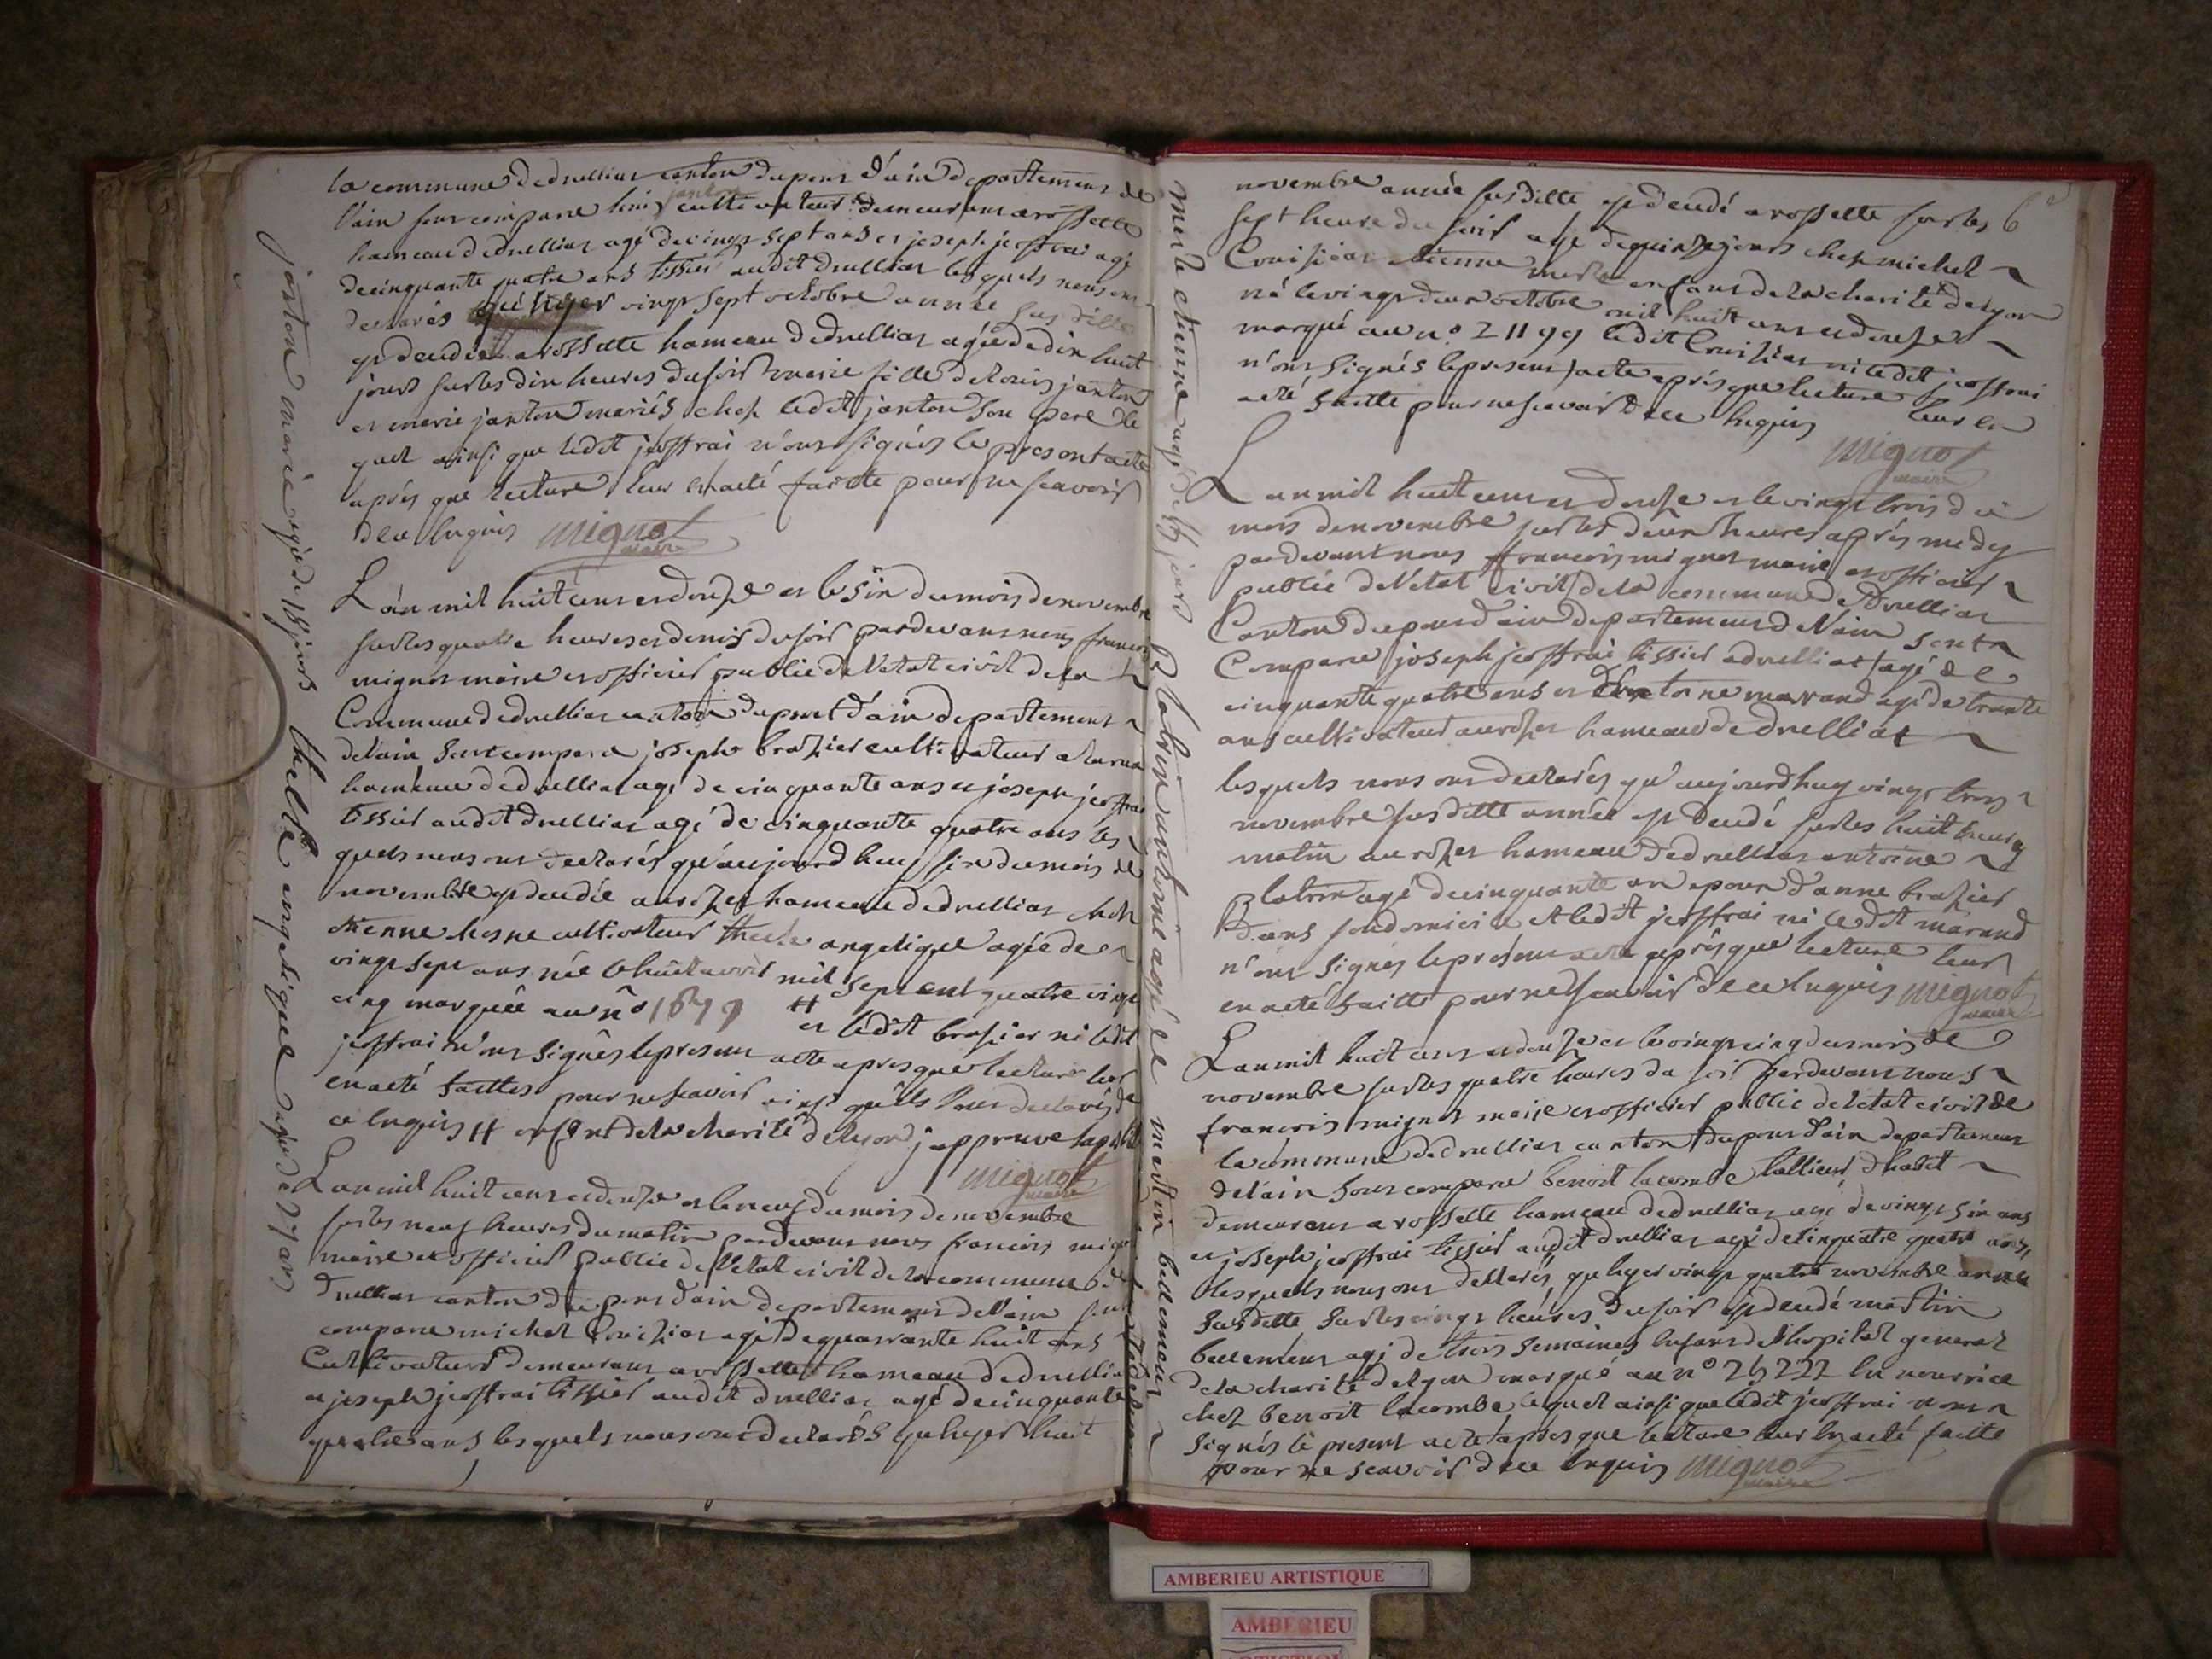 la commune de druillias canton du pont d'ain departement de
l'ain sont comparu louis janton cultivateur demeurant a rossette
hameau de druillias agé de vingt sept ans et joseph jeoffrai agé
de cinquante quatre ans tissier audit druillias lesquels nous ont
declarés qu'hyer vingt sept octobre année sus ditte
est decedée a rossette hameau de druillias agée de dix huit
jours sur les dix heures du soir marie fille de louis janton
et marie janton mariés chez ledit janton son pere le
quel ainsi que ledit jeoffrai n'ont signés le present acte
après que lecture leur en a eté faitte pour ne scavoir
de ce enquis mignot
maire
L'an mil huit cent et douze et le six du mois de novembre
sur les quatre heures et demis du soir pardevant nous francois
mignot maire et officier public de l'etat civil de la
Commune de druillias canton du pont d'ain departement
de l'ain sont comparu joseph brazier cultivateur a
hameau de druillias agé de cinquante ans et joseph jeoffrai
tissier audit druillias agé de cinquante quatre ans les
quels nous ont declarés qu'aujourd huy six du mois de
novembre est decedée hameau de druillias chez
etienne cultivateur thecle angelique agée de
vingt sept ans née le huit avril mil sept cent quatre vingt
cinq marquée au n° 1679 # et ledit brazier ni ledit
jeoffrai n'ont signés le present acte apres que lecture leur
en a eté faittes pour ne scavoir ainsi qu'ils l'ont declarés de
ce enquis # enfant de la charité de lyon j approuve
mignot
maire
L an mil huit cent et douze et le neuf du mois de novembre
sur les neuf heures du matin pardevant nous francois mignot
maire et officier public de l'etat civil de la commune de
druillias canton du pont d'ain departement de l'ain sont
comparu michel Croizier agé de quarante huit ans
Cultivateur demeurant a rossette hameau de druillias
et joseph jeoffrai tissier audit druillias agé de cinquante
quatre ans lesquels nous ont declarés qu'hyer huit
janton marie agée de 18 jours
thecle angelique agée de 27 ans
6e
novembre année susditte est decedé a rossette sur les
sept heure du soir agé de quinze jours chez michel
Croizier etienne merle enfant de la charité de lyon
né le vingt deux octobre mil huit cent et douze
marqué au n° 21199 ledit Croizier ni ledit jeoffrai
n'ont signés le present acte après que lecture leur en
a eté faitte pour ne scavoir de ce enquis
mignot
maire
L an mil huit cent et douze et le vingt trois du
mois de novembre sur les deux heures après medy
pardevant nous francois mignot maire et officier
public de l'etat civil de la commune de druillias
Canton du pont d'ain departement de l'ain sont
Comparu joseph jeoffrai tissier a druillias agé de
cinquante quatre ans et antoine marand agé de trente
ans cultivateur hameau de druillias
lesquels nous ont declarés qu'aujourdhuy vingt trois
novembre sus ditte année est decedé sur les huit heures
matin hameau de druillias antoine
platrin agé de cinquante an epoux d'anne brazier
dans son domicile et ledit jeoffrai ni ledit marand
n'ont signés le present acte après que lecture leur
en a eté faitte pour ne scavoir de ce enquis mignot
maire
L an mil huit cent et douze et le vingt cinq du mois de
novembre sur les quatre heures du soir pardevant nous
francois mignot maire et officier public de l'etat civil de
la commune de druillias canton du pont d'ain departement
de l'ain sont comparu benoit lacombe tallieur d habit
demeurant a rossette hameau de druillias agé de vingt six ans
et joseph jeoffrai tissier audit druillias agé de cinquante quatre ans,
lesquels nous ont declarés qu'hyer vingt quatre novembre année
sus ditte sur les cinq heures du soir est decedé martin
bellemeur agé de trois semaines enfant de l'hopital general
de la charité de lyon marqué au n° 25222 en nourrice
chez benoit lacombe lequel ainsi que ledit jeoffrai n'ont
signés le present acte après que lecture leur en a eté faitte
pour ne scavoir de ce enquis mignot
maire
merle etienne agé de 15 jours
platrin antoine agé de
martin bellemeur
AMBERIEU ARTISTIQUE
AMBERIEU
ARTISTIQUE